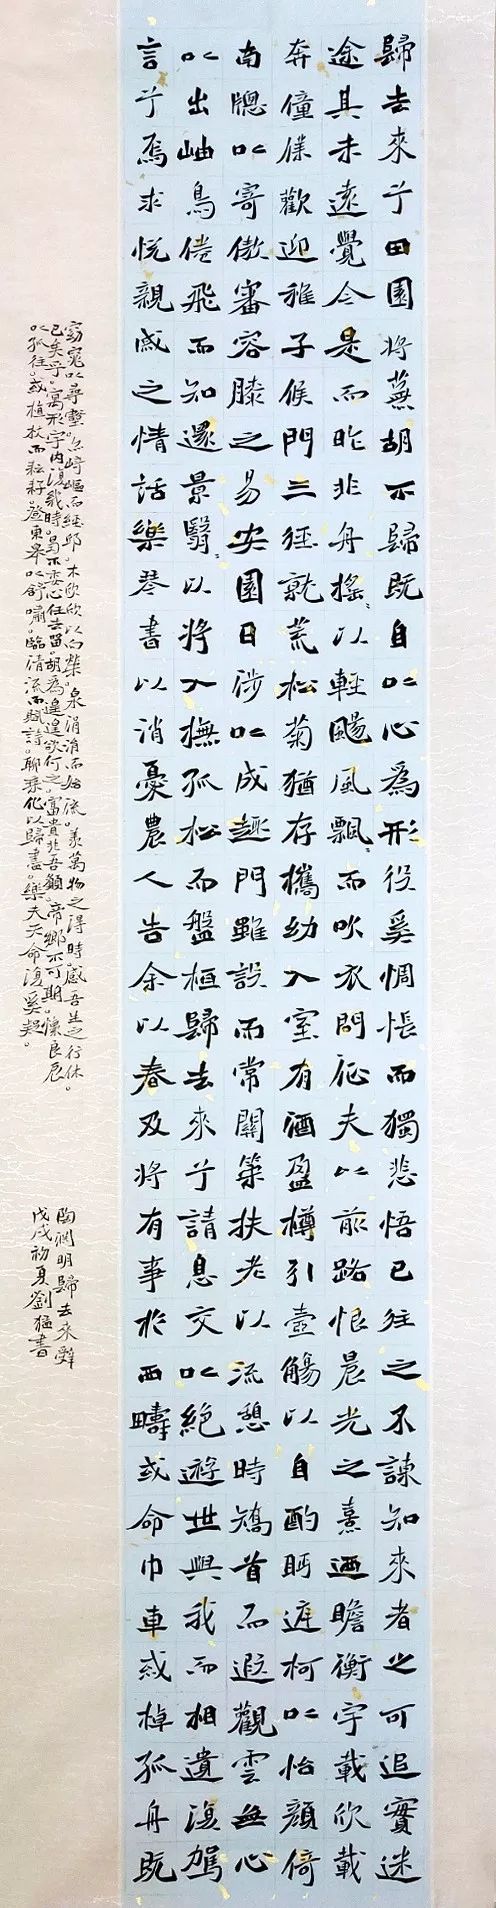 歸去來兮田園將蕪胡不歸既自以心為形役奚惆悵而獨悲悟已往之不諫知來者之可追實迷
途其未遠覺今是而昨非舟搖〻以輕颺風飄〻而吹衣問征夫以前路恨晨光之熹迺瞻衡宇載欣載
奔僮僕歡迎稚子候門三徑就荒松菊猶存攜幼入室有酒盈樽引壺觴以自酌眄庭柯以怡顏倚
南牕以寄傲審容膝之易安園日涉以成趣門雖設而常關策扶老以流憩時矯首而遐觀雲無心
以出岫鳥倦飛而知還景翳〻以將入撫孤松而盤桓歸去來兮請息交以絕遊世與我而相遺復駕
言兮焉求悅親戚之情話樂琴書以消憂農人告余以春及將有事於西疇或命巾車或棹孤舟既
窈窕以尋壑。亦崎嶇而經邱。木欣欣以向榮。泉涓涓而始流。羨萬物之得時。感吾生之行休。
已矣乎。寓形宇內復幾時。曷不委心任去留。胡為遑遑欲何之。富貴非吾願。帝鄉不可期。懷良辰
以孤往。或植杖而耘耔。登東皋以舒嘯。臨清流而賦詩。聊乘化以歸盡。樂夫天命復奚疑。
陶淵明歸去來辭
戊戌初夏劉猛書